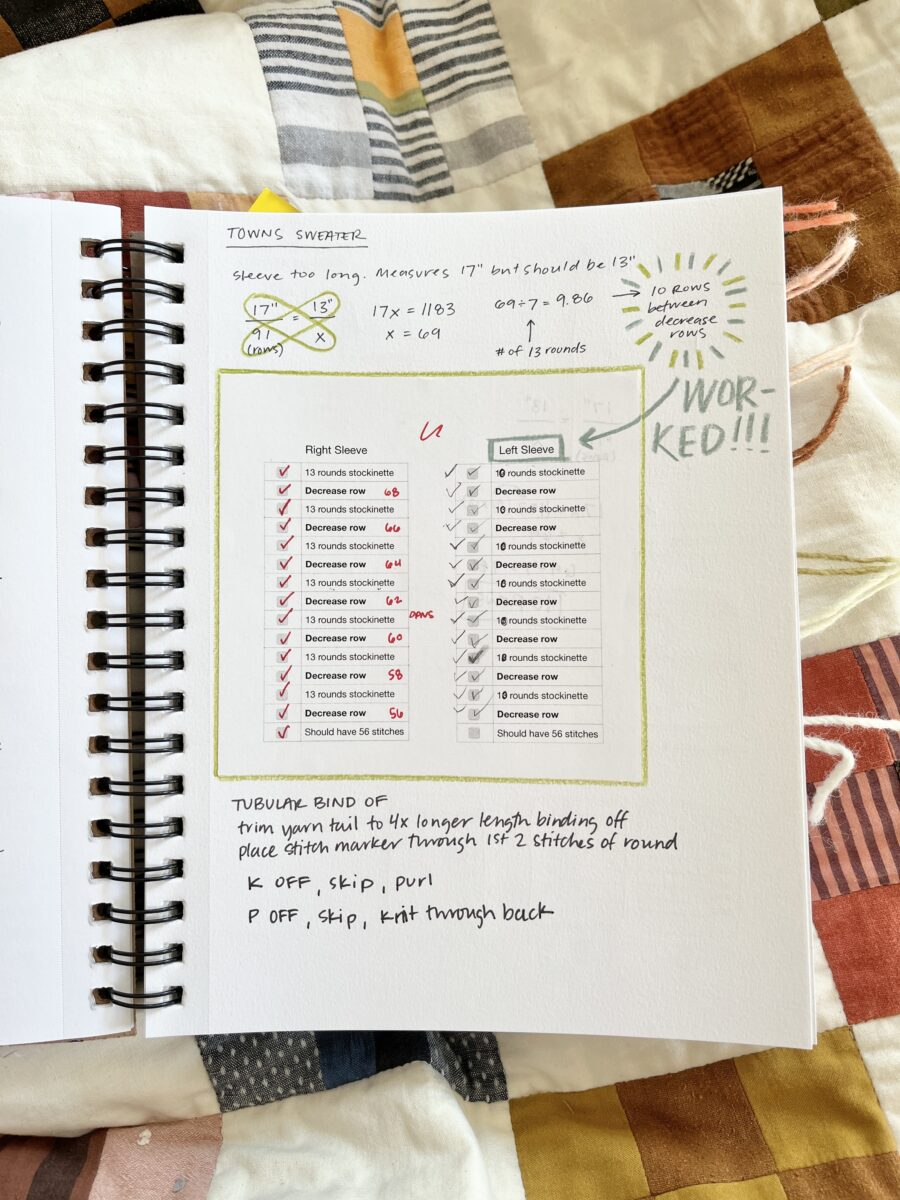 TOWNS SWEATER
sleeve too long. Measures 17" but should be 13"
17" = 13"
91 x
(rows)
17x = 1183
x = 69
69÷7 = 9.86
# of 13 rounds
10 ROWS
between
decrease
rows
WOR-
KED!!!
Right Sleeve
13 rounds stockinette
Decrease row 68
13 rounds stockinette
Decrease row 66
13 rounds stockinette
Decrease row 64
13 rounds stockinette
Decrease row 62
13 rounds stockinette DPNS
Decrease row 60
13 rounds stockinette
Decrease row 58
13 rounds stockinette
Decrease row 56
Should have 56 stitches
Left Sleeve
10 rounds stockinette
Decrease row
10 rounds stockinette
Decrease row
10 rounds stockinette
Decrease row
10 rounds stockinette
Decrease row
10 rounds stockinette
Decrease row
10 rounds stockinette
Decrease row
10 rounds stockinette
Decrease row
Should have 56 stitches
TUBULAR BIND OF
trim yarn tail to 4x longer length binding off
place stitch marker through 1st 2 stitches of round
K OFF, skip, purl
P OFF, skip, knit through back